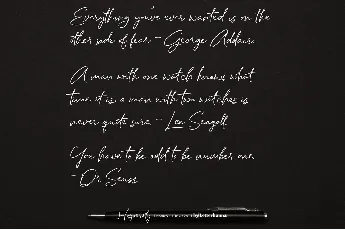 Everything you've ever wanted is on the
other side of fear. - George Addair
A man with one watch knows what
time it is; a man with two watches is
never quite sure. - Lee Segall
You have to be odd to be number one.
- Dr. Seuss